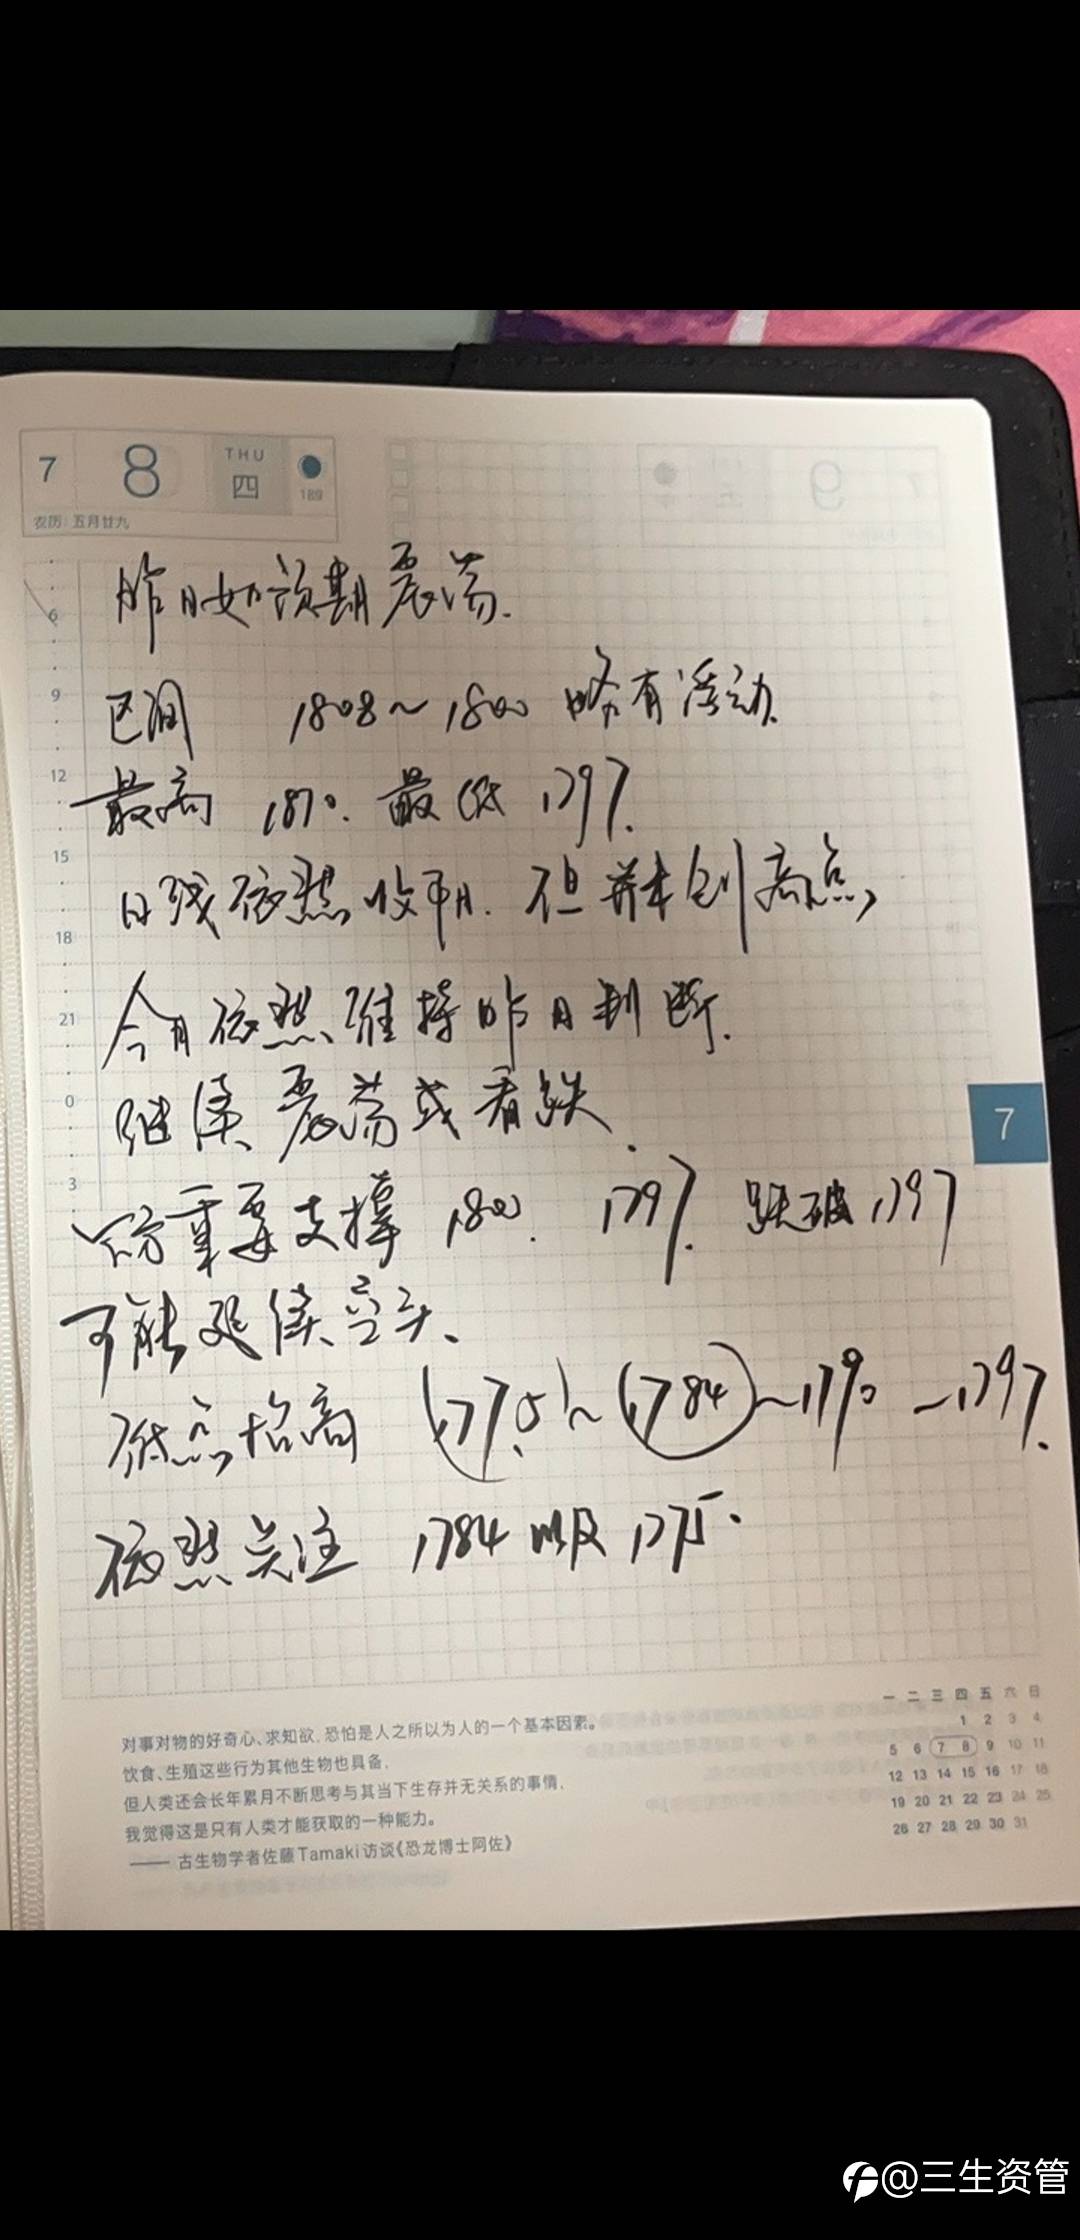 7 8 THU 四 189
农历:五月廿九
昨日如预期震荡.
区间 1808~1800 略有浮动.
最高 1810. 最低 1797.
日线依然收阳. 但并未创高点,
今日依然维持昨日判断.
继续震荡或看跌.
下方重要支撑 1800. 1797. 跌破1797
可能延续空头.
低点抬高 (1775)~(1784)~1790-1797.
依然关注 1784 以及 1775.
6
9
12
15
18
21
0
3
7
对事对物的好奇心、求知欲,恐怕是人之所以为人的一个基本因素。
饮食、生殖这些行为其他生物也具备,
但人类还会长年累月不断思考与其当下生存并无关系的事情,
我觉得这是只有人类才能获取的一种能力。
—— 古生物学者佐藤Tamaki访谈《恐龙博士阿佐》
一 二 三 四 五 六 日
1 2 3 4
5 6 7 8 9 10 11
12 13 14 15 16 17 18
19 20 21 22 23 24 25
26 27 28 29 30 31
@三生资管